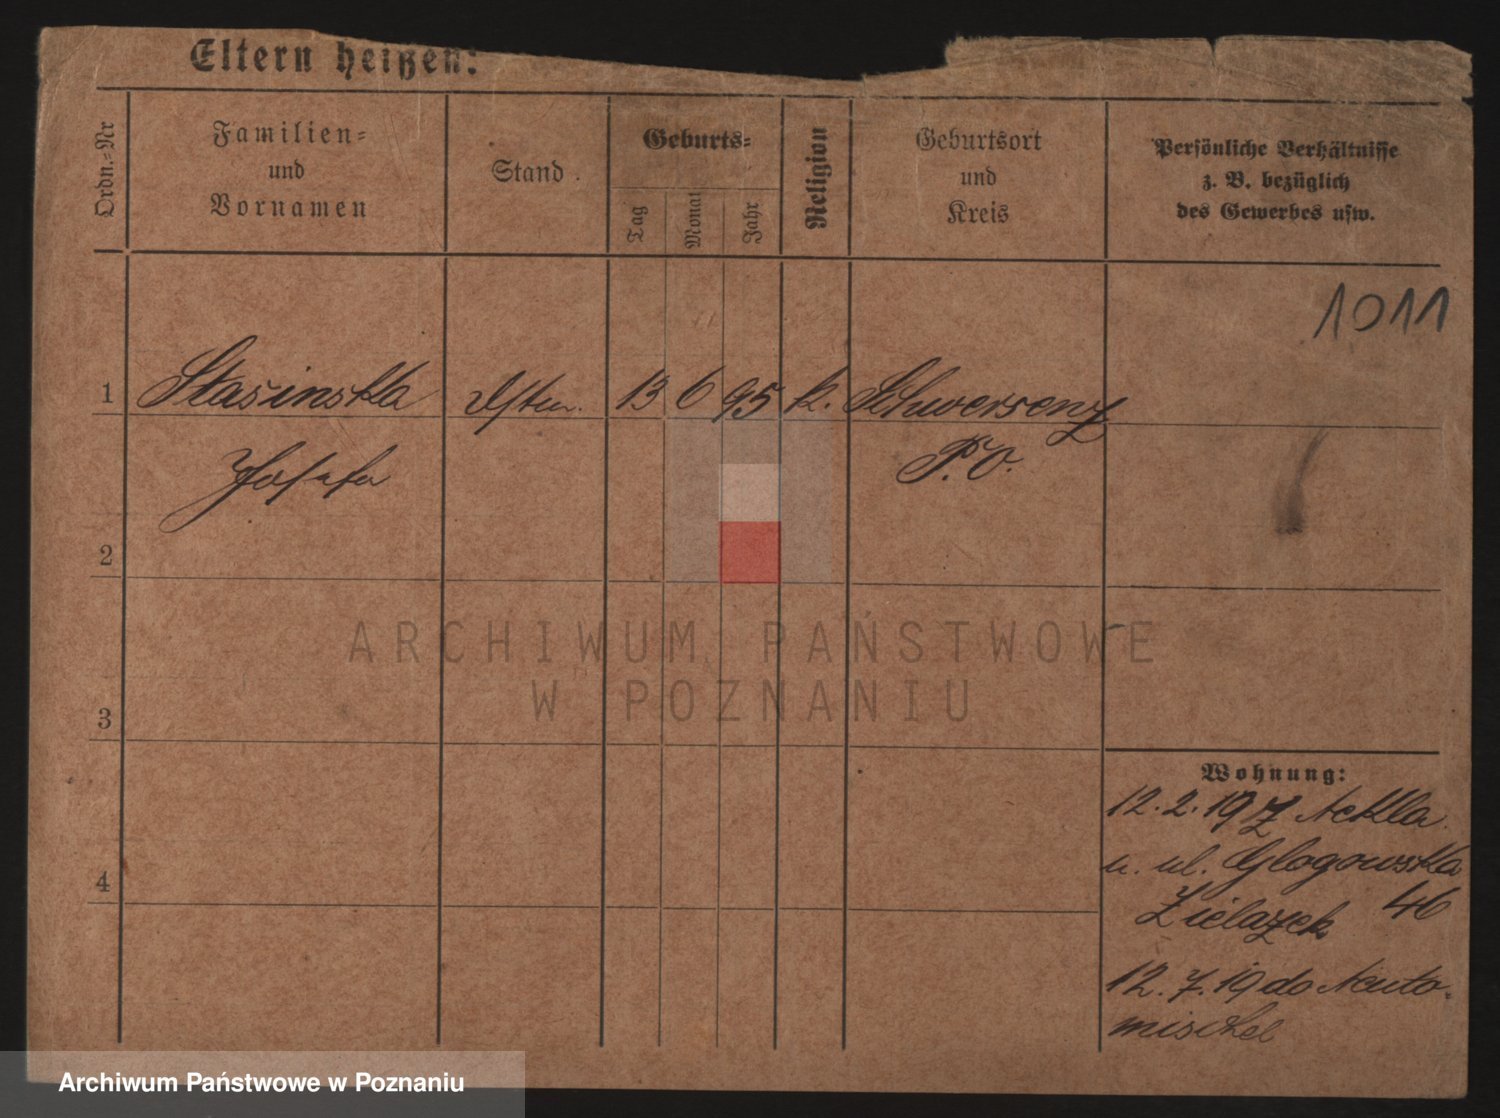 Eltern heißen:
Ordn.-Nr
Familien-
und
Vornamen
Stand.
Geburts-
Tag
Monat
Jahr
Religion
Geburtsort
und
Kreis
Persönliche Verhältnisse
z. B. bezüglich
des Gewerbes usw.
1011
1 Stasinska 13 6 95 k. Schwersenz
Josefa P.O.
2
3
4
ARCHIWUM PAŃSTWOWE
W POZNANIU
Wohnung:
12. 2. 19 z Nekla
u. ul. Glogowska
Zielazek 46
12. 7. 19 do Neuto-
mischel
Archiwum Państwowe w Poznaniu